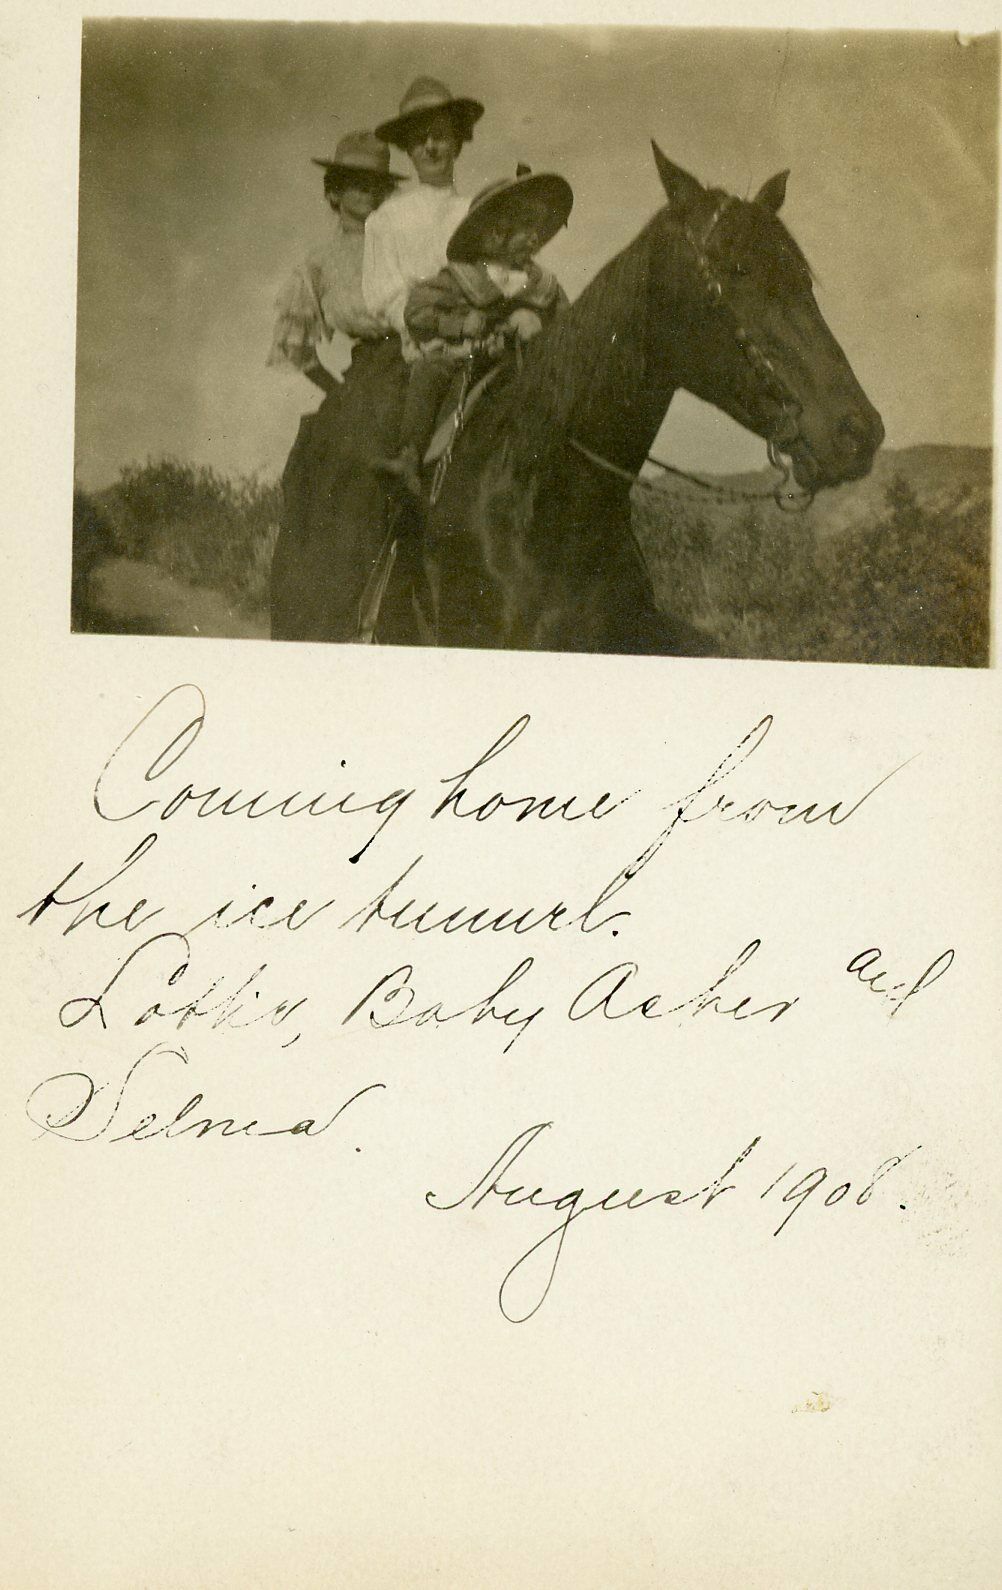 Coming home from
the ice tunnel.
Lottie, Baby Asher and
Selma.
August 1908.